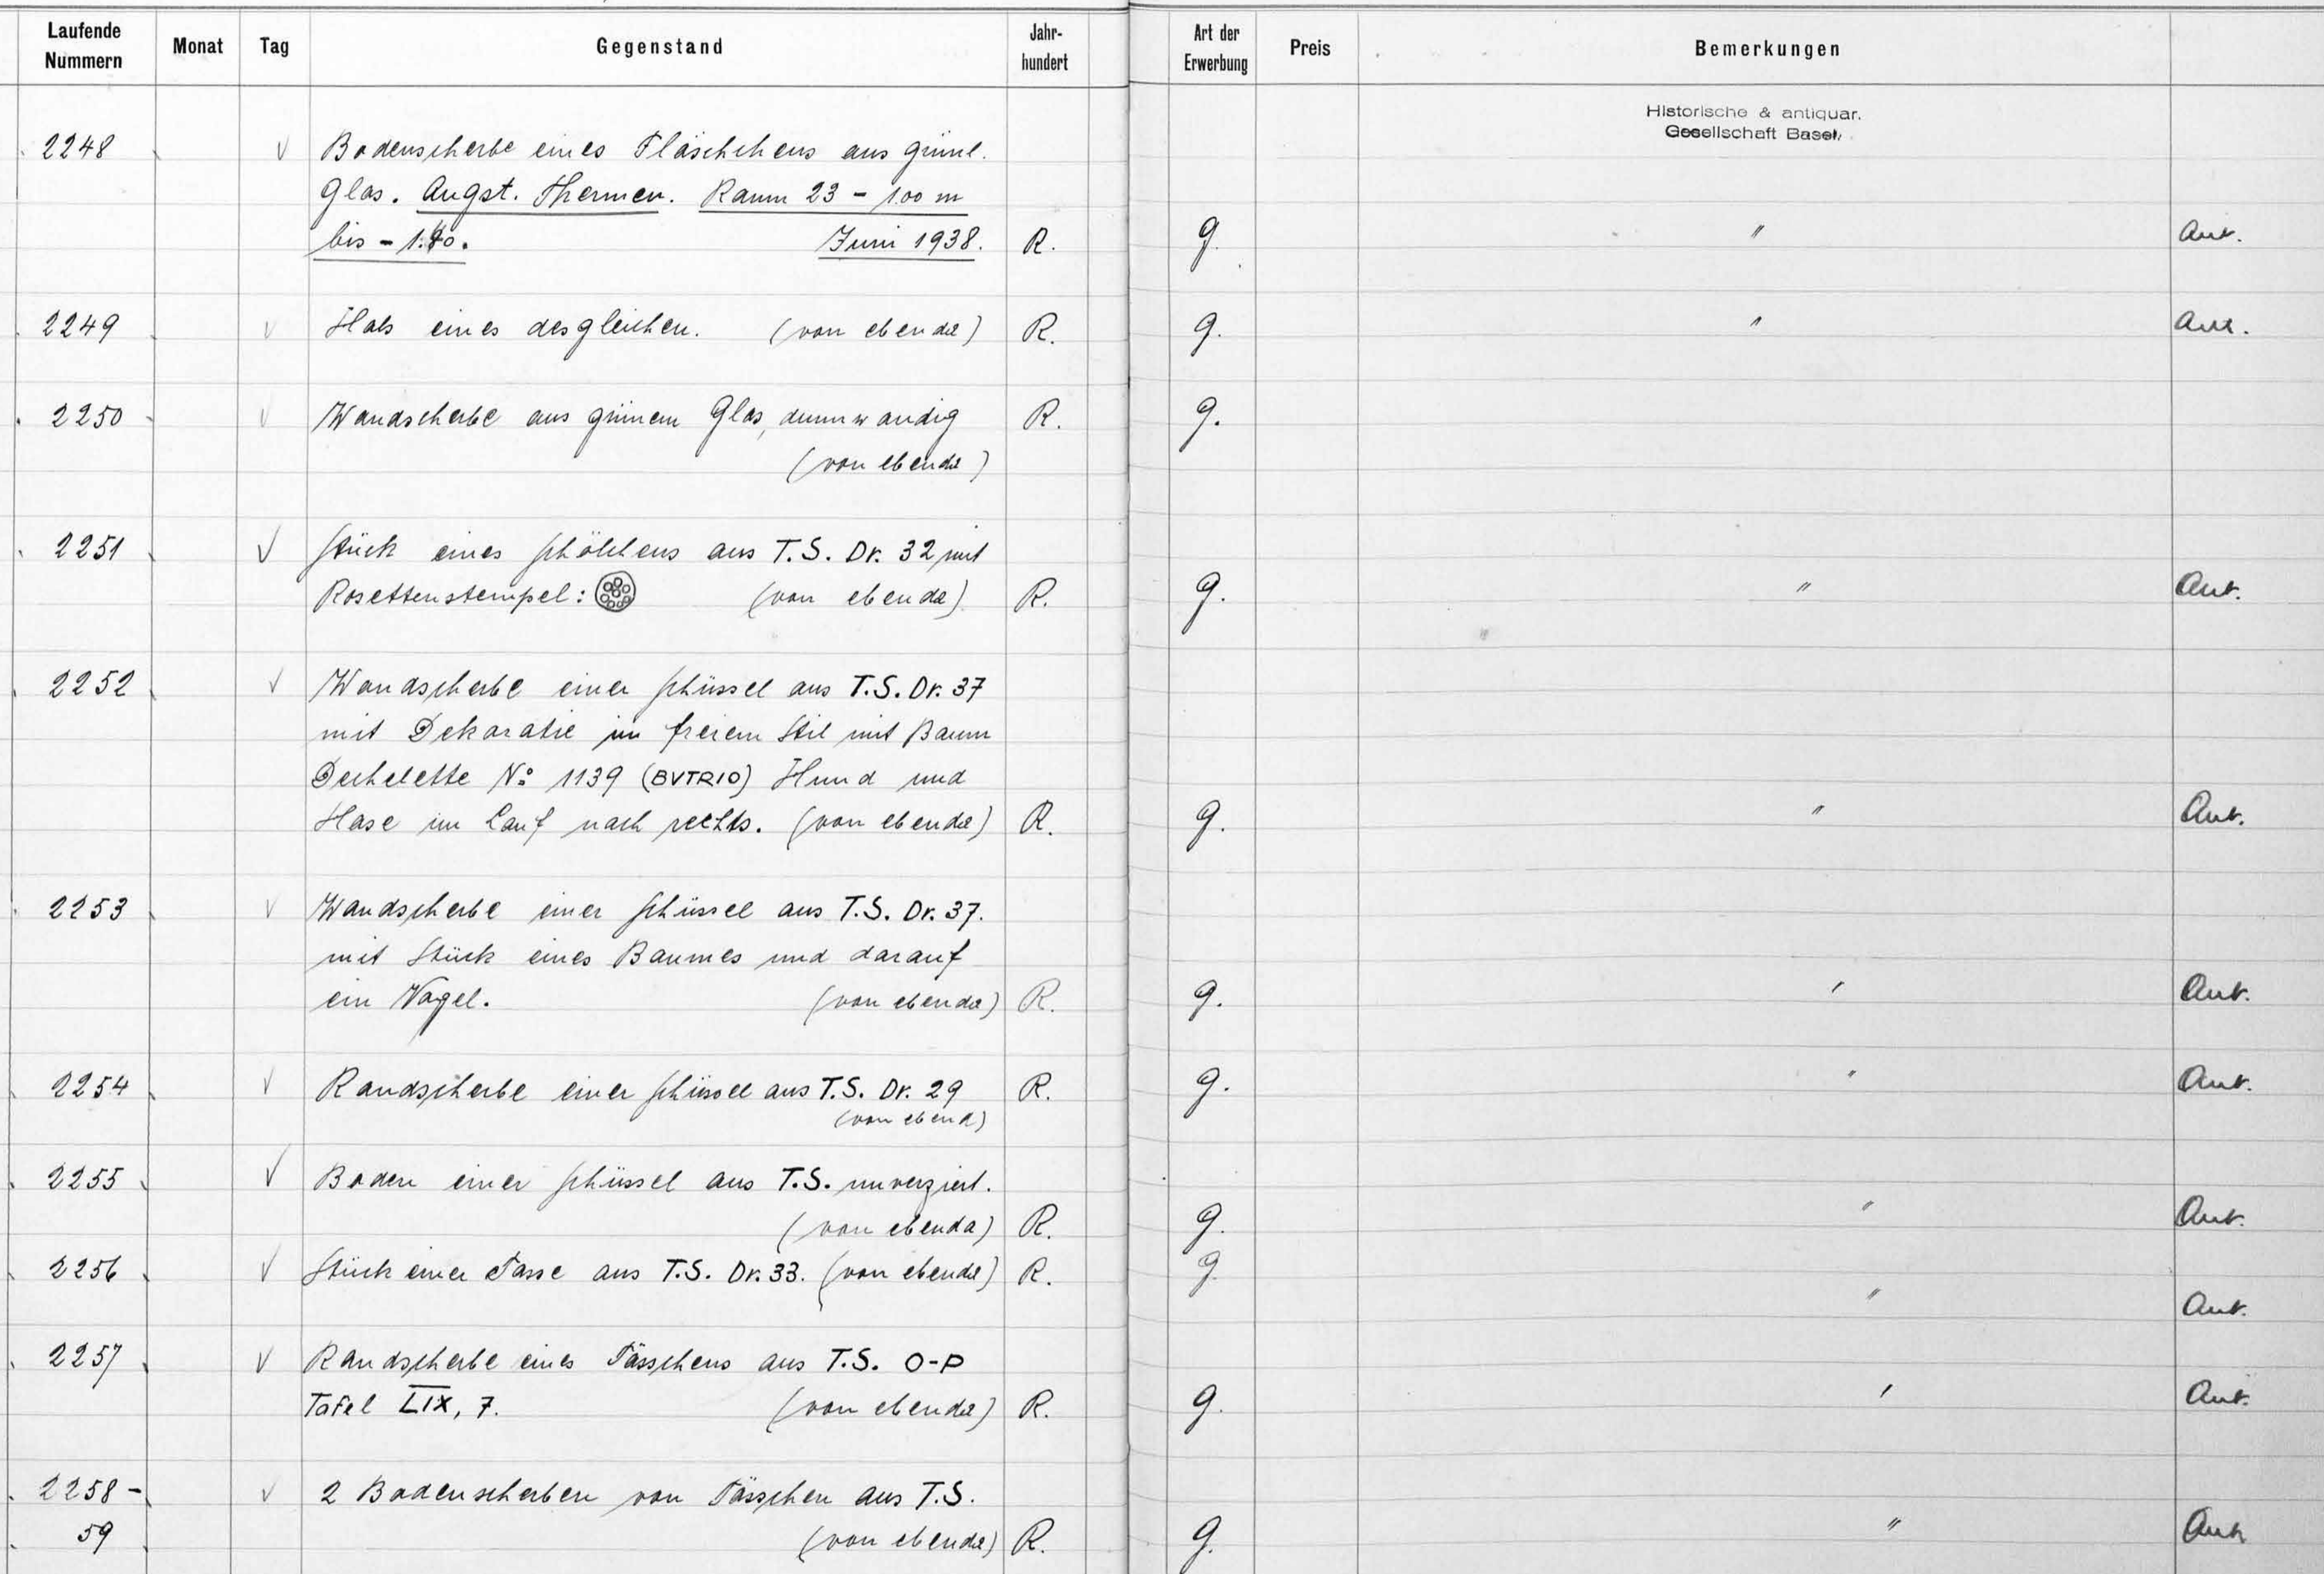 Laufende Nummern Monat Tag Gegenstand Jahr-hundert Art der Erwerbung Preis Bemerkungen
Historische & antiquar.
Gesellschaft Basel.
2248 √ Bodenscherbe eines Fläschchens aus grünl.
Glas. Augst. Thermen. Raum 23 - 1.00 m
bis - 1.40. Juni 1938. R. g. " Ant.
2249 √ Hals eines desgleichen. (von ebenda) R. g. " Ant.
2250 √ Wandscherbe aus grünem Glas, dünnwandig R. g.
(von ebenda)
2251 √ Stück eines Schälchens aus T.S. Dr. 32 mit
Rosettenstempel: (von ebenda) R. g. " Ant.
2252 √ Wandscherbe einer Schüssel aus T.S. Dr. 37
mit Dekoratie im freiem Stil mit Baum
Dechelette No 1139 (BVTRIO) Hund und
Hase im Lauf nach rechts. (von ebenda) R. g. " Ant.
2253 √ Wandscherbe einer Schüssel aus T.S. Dr. 37.
mit Stück eines Baumes und darauf
ein Vogel. (von ebenda) R. g. " Ant.
2254 √ Randscherbe einer Schüssel aus T.S. Dr. 29 R. g. " Ant.
(von ebend)
2255 √ Boden einer Schüssel aus T.S. unverziert.
(von ebenda) R. g. " Ant.
2256 √ Stück einer Tasse aus T.S. Dr. 33. (von ebenda) R. g. " Ant.
2257 √ Randscherbe eines Tässchens aus T.S. O-P
Tafel LIX, 7. (von ebenda) R. g. " Ant.
2258- √ 2 Bodenscherben von Tässchen aus T.S.
59 (von ebenda) R. g. " Ant